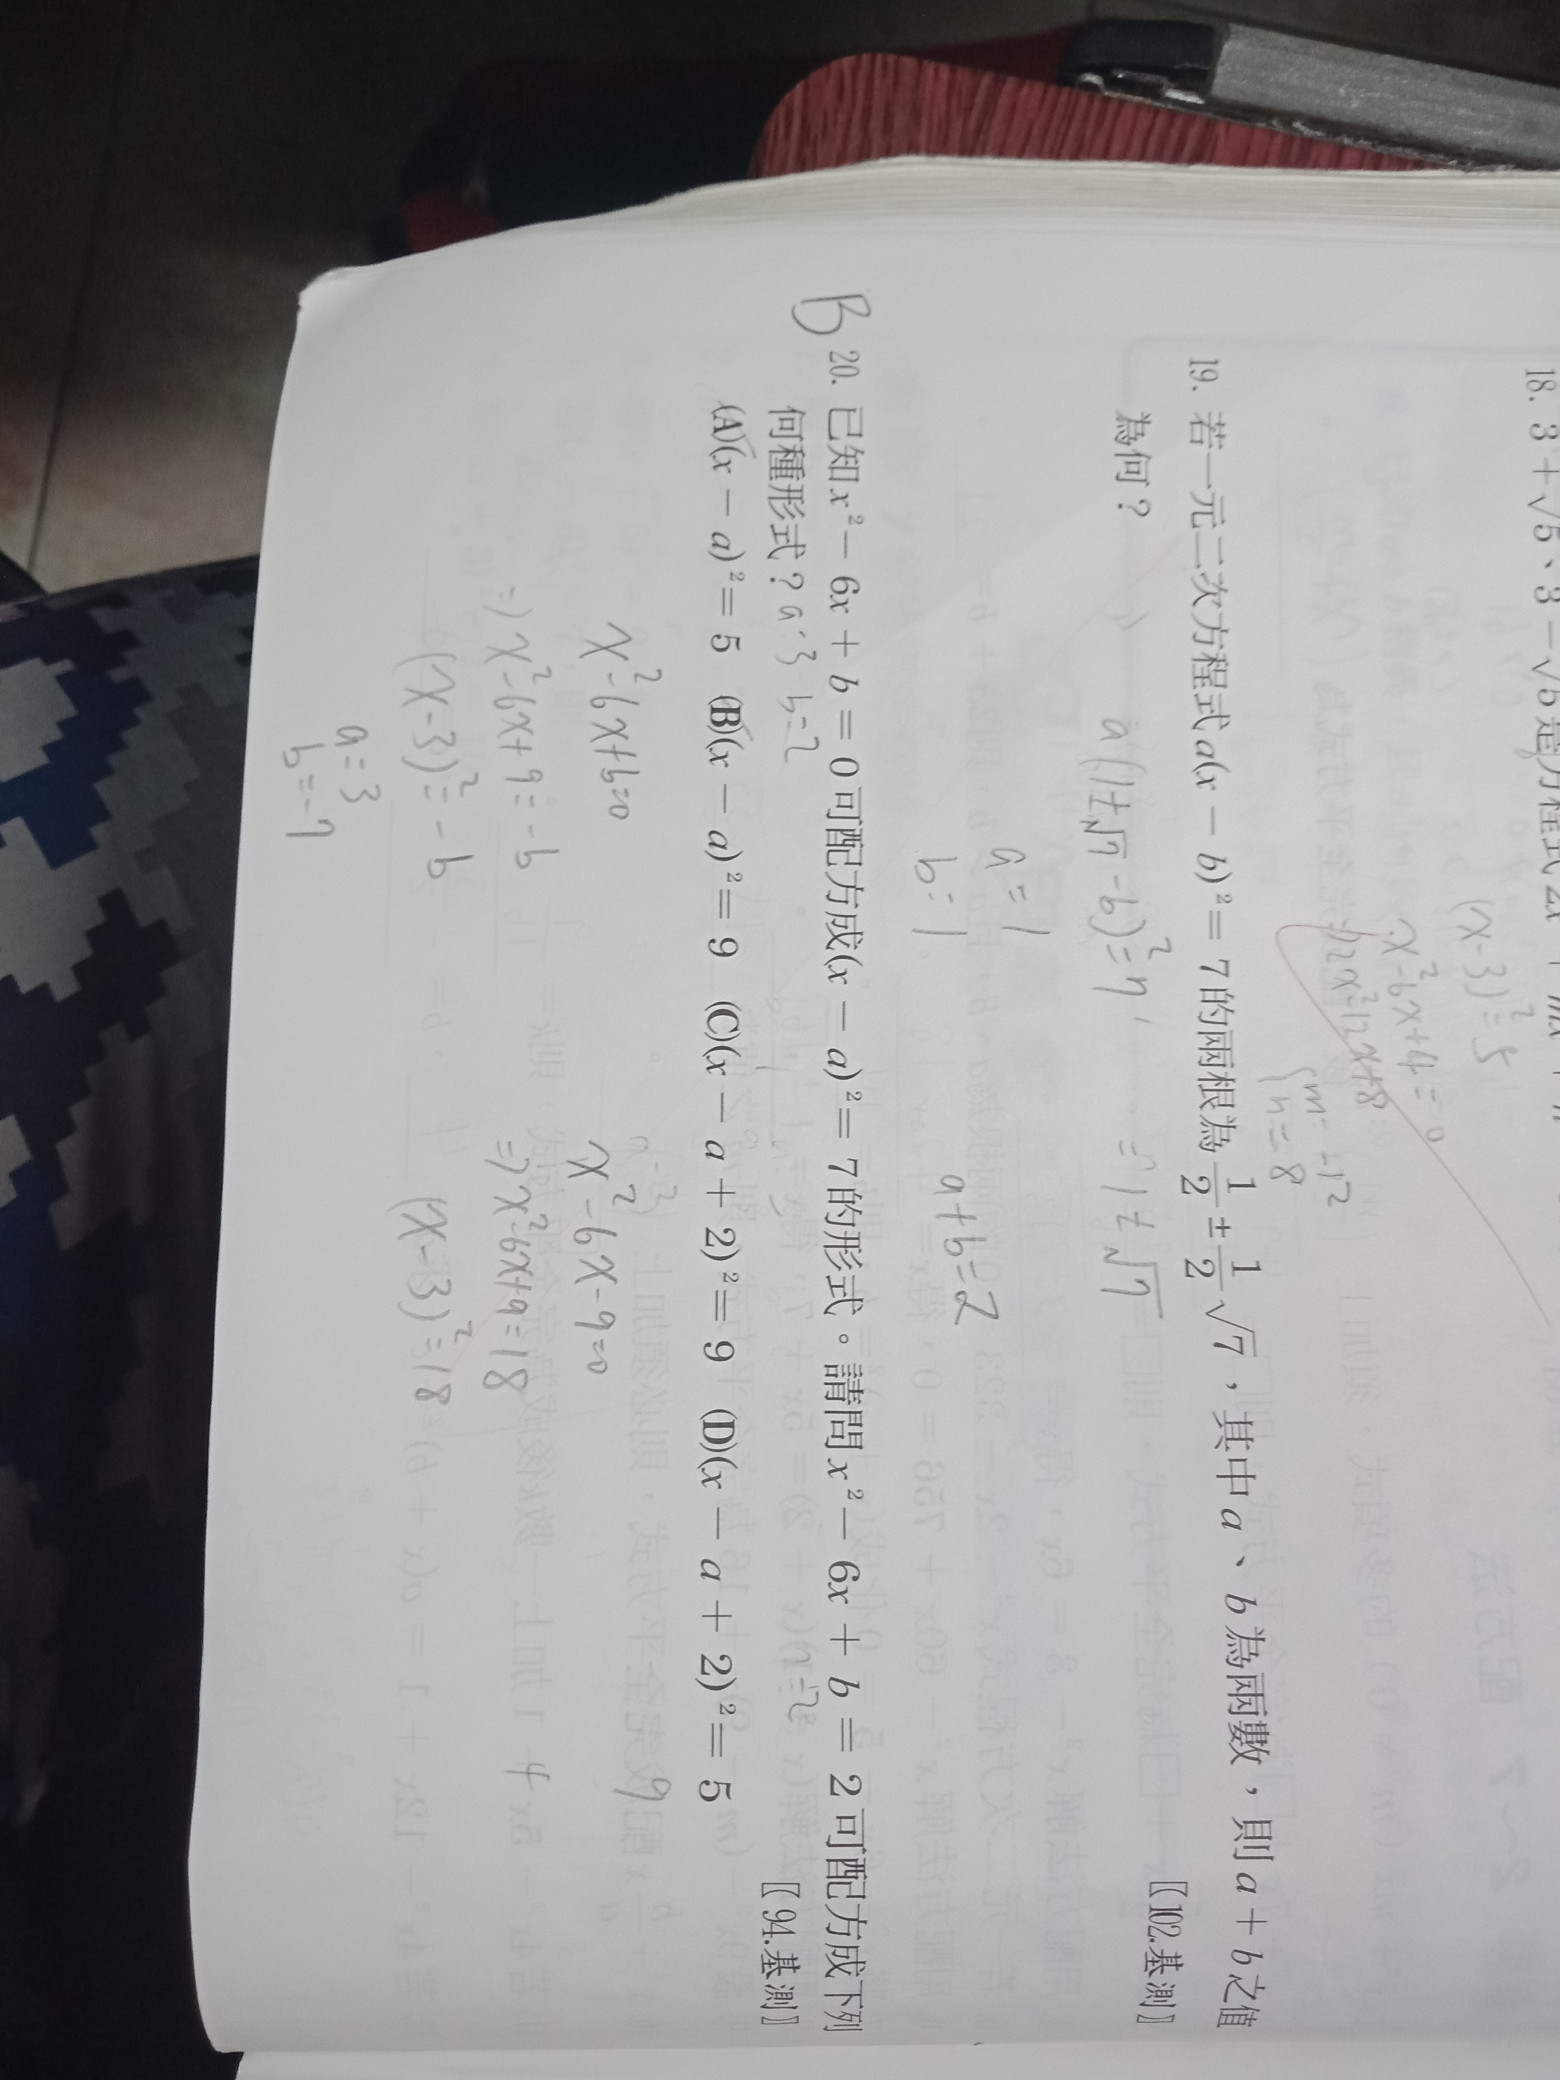 18. 3+√5、3-√5是方程式2x
(x-3)²=5
x²-6x+4=0
2x²-12x+8=
m=-12
n=8
19. 若一元二次方程式a(x-b)²=7的兩根為1/2±1/2√7,其中a、b為兩數,則a+b之值
為何?
〖102.基測〗
a(1±√7-b)²=7
=1±√7
a=1
b=1
a+b=2
B 20. 已知x²-6x+b=0可配方成(x-a)²=7的形式。請問x²-6x+b=2可配方成下列
何種形式? a=3 b=2
〖94.基測〗
(A)(x-a)²=5 (B)(x-a)²=9 (C)(x-a+2)²=9 (D)(x-a+2)²=5
x²-6x+b=0
⇒x²-6x+9=-b
(x-3)²=-b
a=3
b=-7
x²-6x-9=0
⇒x²-6x+9=18
(x-3)²=18